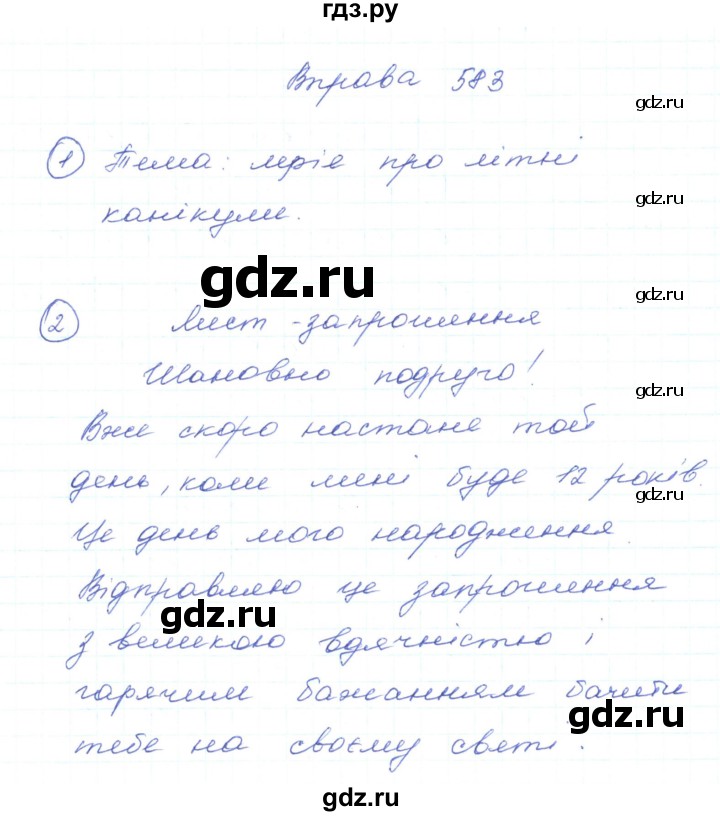 гдз.ру
Вправа 583
gdz.ru
1 Тема: мріє про літні
gdz.ru
канікули.
gdz.ru
gdz.ru
2 Лист-запрошення
Шановно подруго!
gdz.ru
Вже скоро настане той
день, коли мені буде 12 років.
gdz.ru
Це день мого народження
Відправляю це запрошення
gdz.ru
з великою вдячністю і
гарячим бажанням бачити
gdz.ru
тебе на своєму святі.
gdz.ru